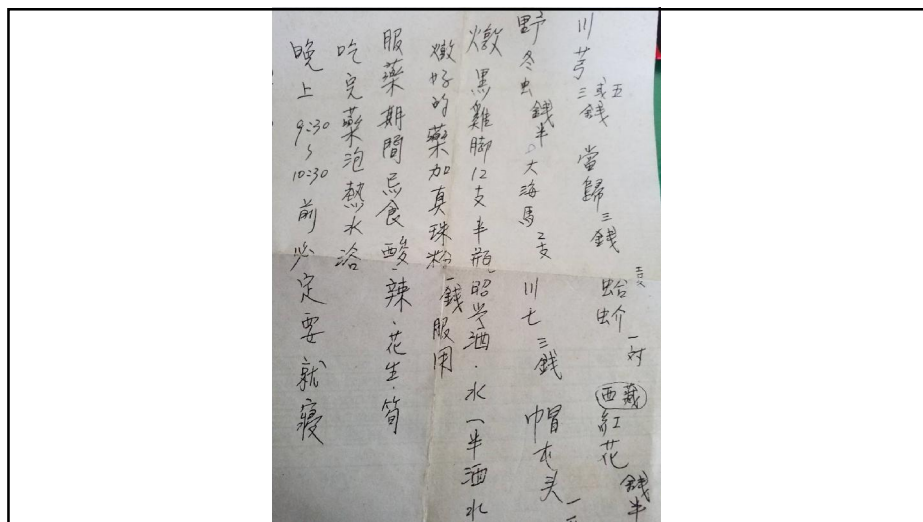 川芎三或五錢 當歸三錢 蛤蚧一対 西藏紅花錢半
野冬虫錢半。大海馬2支 川七三錢 帽头一
燉黑雞脚12支半瓶昭酒.水一半酒水
燉好的藥加真珠粉一錢服用
服藥期間忌食酸.辣.花生.筍
吃完藥泡熱水浴
晚上9:30~10:30前必定要就寢